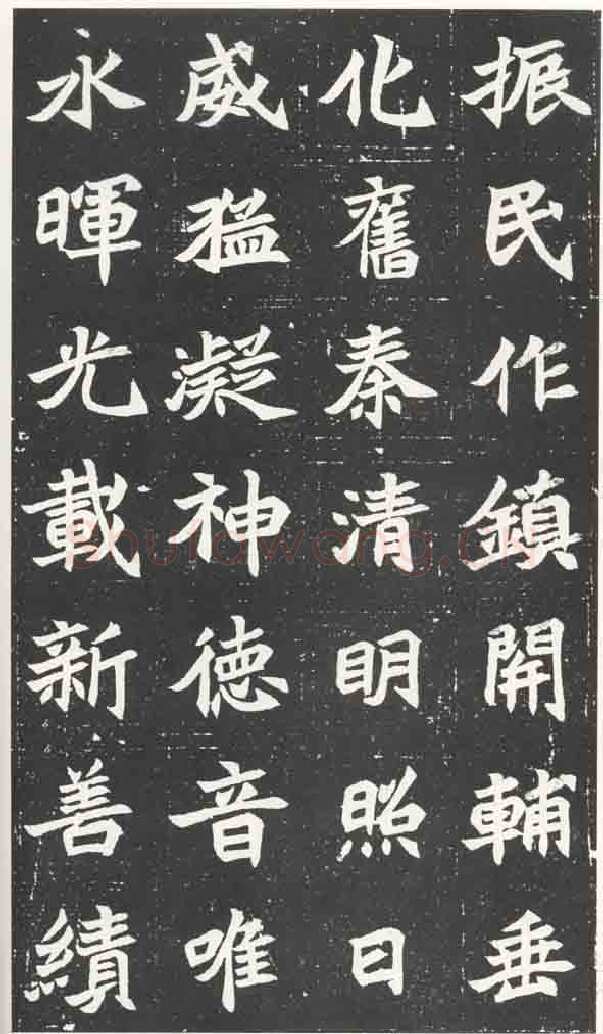 振民作鎮開輔垂
化舊秦清明照日
威猛凝神徳音唯
永暉光載新善績
shufawang.cn